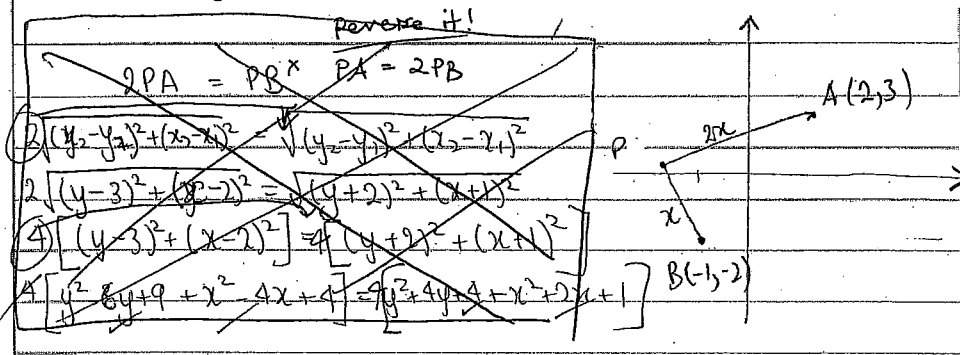 reverse it!
2PA = PB × PA = 2PB
2√(y₂-y₁)²+(x₂-x₁)² = √(y₂-y₁)²+(x₂-x₁)²
2√(y-3)²+(x-2)² = √(y+2)²+(x+1)²
4[(y-3)²+(x-2)²] = 4[(y+2)²+(x+1)²]
4[y²-6y+9+x²-4x+4] = 4[y²+4y+4+x²+2x+1]
A(2,3)
2x
P
x
B(-1,-2)